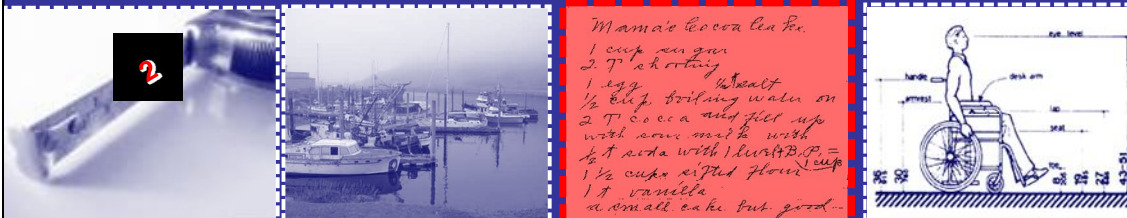 2
Mama's Cocoa Cake.
1 cup sugar
2 T shorting
1 egg ½ t salt
½ cup boiling water on
2 T cocoa and fill up
with sour milk with
½ t soda with 1 level t B.P. =
1 cup
1 ½ cups sifted flour
1 t vanilla
a small cake but good
eye level
handle
desk arm
armrest
lap
seat
toe
36
30
30
19
27
43-51